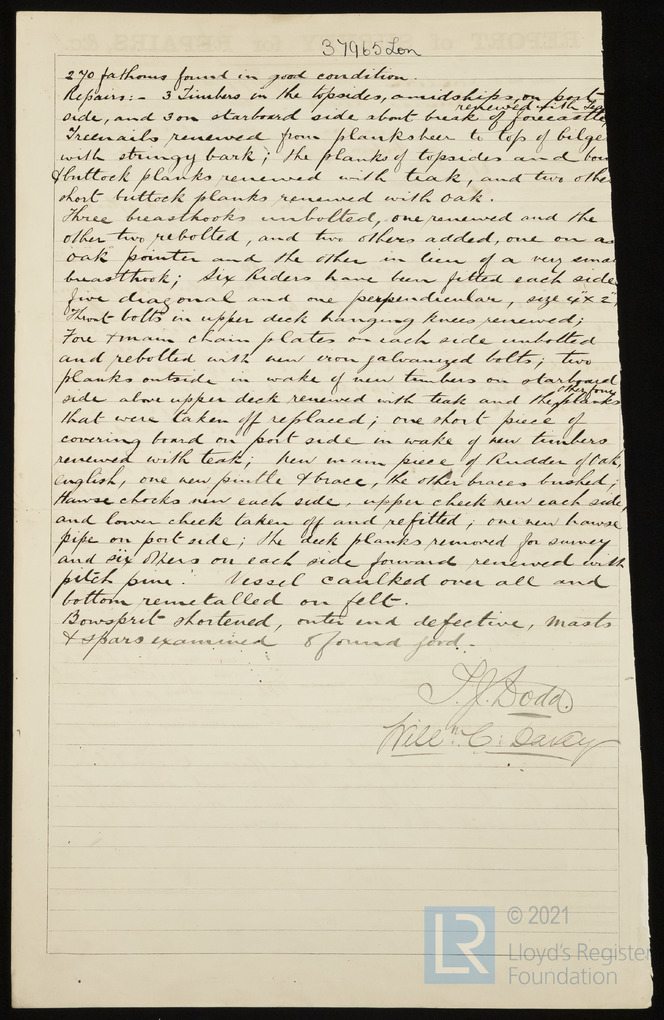 37965 Lon
270 fathoms found in good condition.
Repairs:- 3 Timbers in the topsides, amidships, on port
renewed with Teak
side, and 3 on starboard side about break of forecastle,
Treenails renewed from planksheer to top of bilge
with stringy bark; the planks of topsides and bow
& buttock planks renewed with teak, and two other
short buttock planks renewed with oak.
Three breasthooks unbolted, one renewed and the
other two rebolted, and two others added, one on an
oak pointer and the other in lieu of a very small
breasthook; Six Riders have been fitted each side
five diagonal and one perpendicular, size 4" x 2",
Throat bolts in upper deck hanging knees renewed;
Fore & main chain plates on each side unbolted
and rebolted with new iron galvanized bolts; two
planks outside in wake of new timbers on starboard
other four
side above upper deck renewed with teak and the planks
that were taken off replaced; one short piece of
covering board on port side in wake of new timbers
renewed with teak; New main piece of Rudder of Oak,
English, one new pintle & brace, the other braces bushed;
Hawse chocks new each side, upper cheek new each side,
and lower cheek taken off and refitted; one new hawse
pipe on port side; the deck planks removed for survey
and six others on each side forward renewed with
pitch pine. Vessel caulked over all and
bottom remetalled on felt.
Bowsprit shortened, outer end defective, masts
& spars examined & found good.
T. J. Dodd.
Willm. C. Davey
LR
© 2021
Lloyd's Register
Foundation